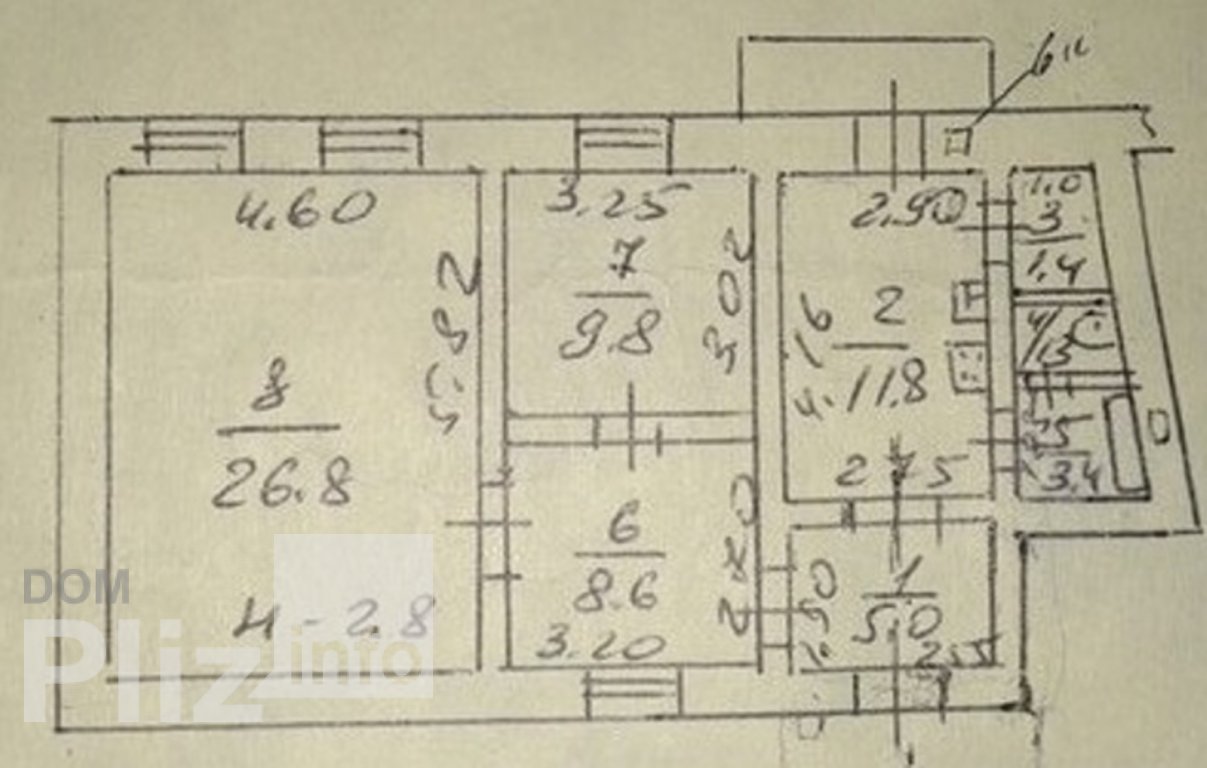 4.60
5.82
8
26.8
H - 2.8
3.25
7
9.8
3.02
6
8.6
3.20
2.90
2
11.8
4.16
2.75
1
5.0
2.55
1.0
3
1.4
4/
3.4
DOM
Pliz info